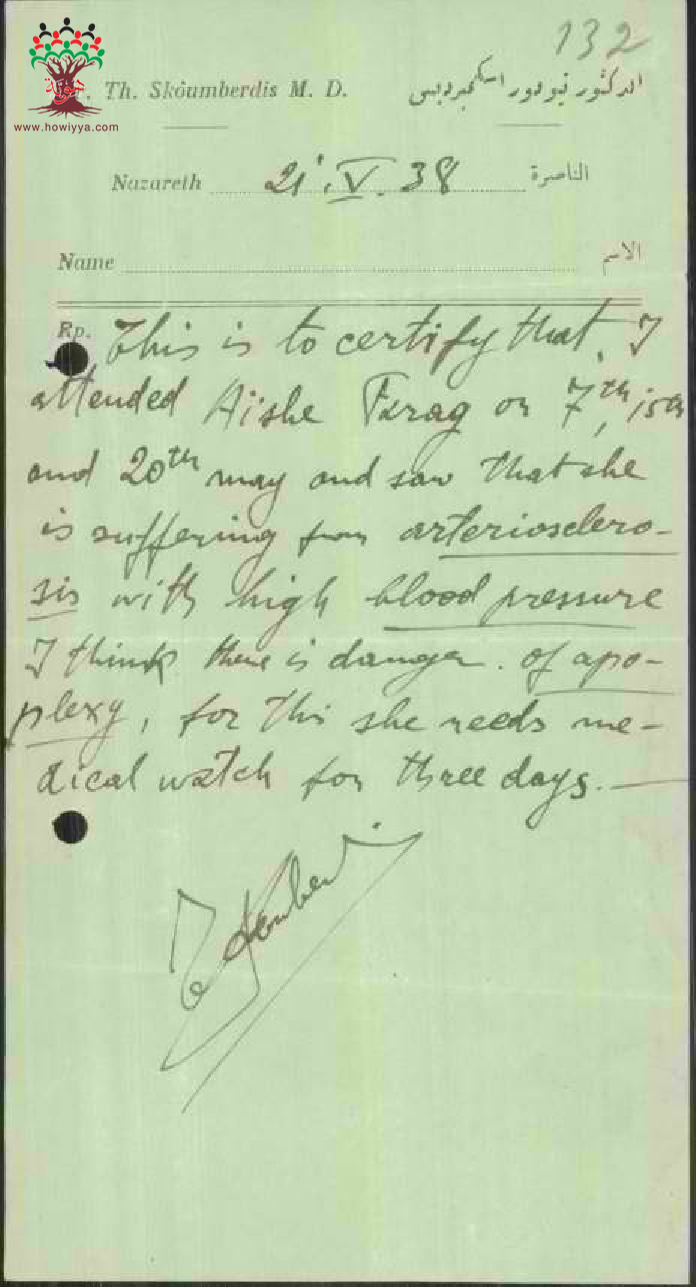 132
. Th. Skoumberdis M. D.
الدكتور تيودور اسكمبرديس
هوية
www.howiyya.com
Nazareth 21.V.38 الناصرة
Name الاسم
Rp. This is to certify that, I
attended Aïshe Farag on 7th, 15th
and 20th may and saw that she
is suffering from arteriosclero-
sis with high blood pressure
I think there is danger. of apo-
plexy, for this she needs me-
dical watch for three days.—